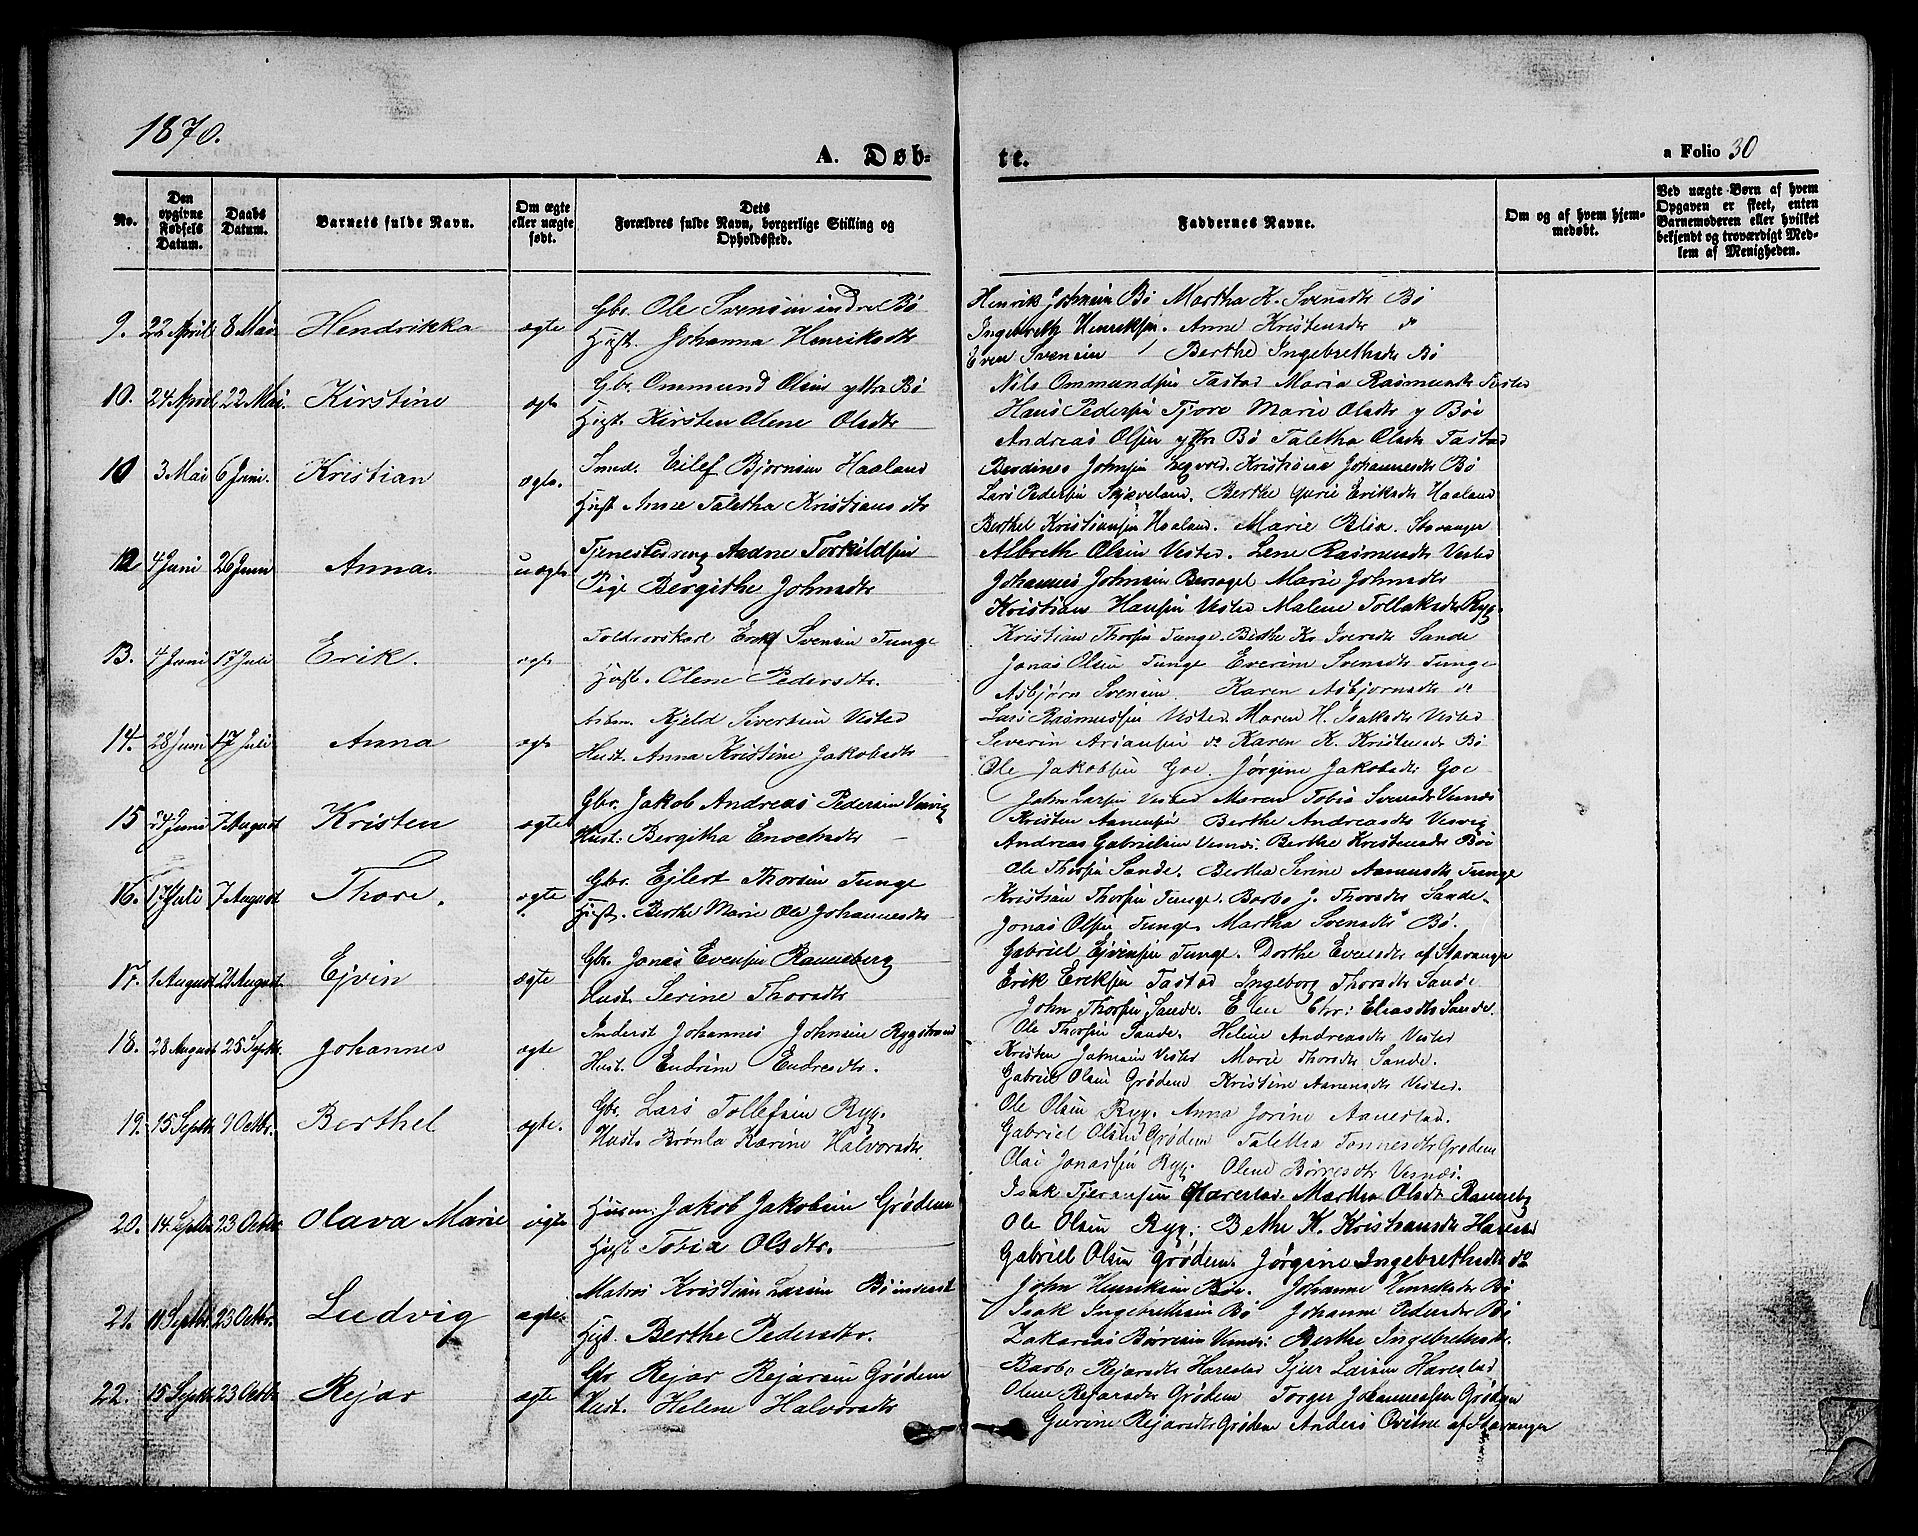 1870.
A. Døb-
te.
a Folio 30
No.
Den opgivne Fødsels Datum.
Daabs Datum.
Barnets fulde Navn.
Om ægte eller uægte født.
Dets Forældres fulde Navn, borgerlige Stilling og Opholdssted.
Faddernes Navne.
Om og af hvem hjemmedøbt.
Ved uægte Børn af hvem Opgaven er skeet, enten Barnemoderen eller hvilket bekjendt og troværdigt Medlem af Menigheden.
9. 22 April 8 Mai Hendrikka ægte
Gbr. Ole Svensen indre Bø
Hust. Johanna Henriksdtr
Henrik Johnsen Bø Martha K. Svensdtr Bø
Ingebreth Henriksen. Anne Kristensdtr do
Even Svensen Berthe Ingebrethsdtr Bø
10. 24 April 22 Mai. Kirstine ægte
Gbr. Ommund Olsen yttre Bø
Hust. Kirsten Olene Olsdtr
Nils Ommundsen Tastad Maria Rasmusdtr Tastad
Hans Pedersen Tjore Marie Olsdtr y Bø
Andreas Olsen yttre Bø Taletha Olsdtr Tastad
3 Mai 6 Juni. Kristian ægte.
Smed. Eilef Bjørnsen Haaland
Hust Anne Taletha Kristiansdtr
Berdines Johnsen Kristiane Johannesdtr Bø
Lars Pedersen Skjæveland. Berthe Gurie Eriksdtr Haaland
Berthel Kristiansen Haaland. Marie Stavanger
4 Juni 26 Juni Anna. uægte
Tjenestedreng Aadne Torkildsen
Pige Bergithe Johnsdtr
Albreth Olsen Vested. Lene Rasmusdtr Vested
Johannes Johnsen Marie Johnsdtr
Kristian Hansen Vested Malene Tollaksdtr Ryg.
13. 4 Juni 17 Juli Erik. ægte
Erik Svensen Tunge
Hust. Olene Pedersdtr.
Kristian Thorsen Tunge. Berthe K. Iversdtr Sande
Jonas Olsen Tunge Everine Svensdtr Tunge
Asbjørn Svensen Karen Asbjørnsdtr do
14. 28 Juni 17 Juli Anna ægte
Kjeld Sivertsen Vested
Hust. Anna Kristine Jakobsdtr
Lars Rasmussen Vested. Maren H. Isaksdtr Vested
Severin do Karen K. Kristensdtr Bø
Ole Jakobsen Goe. Jørgine Jakobsdtr Goe
15 24 Juni 7 August Kristen ægte
Gbr. Jakob Andreas Pedersen Vesvig
Hust: Bergitha Enochsdtr
John Larsen Vested Maren Tobia Svensdtr Vesnæs
Kristen Aanensen Berthe Andreasdtr Vesvig
Andreas Gabrielsen Vesnæs: Berthe Kristensdtr Bøe
16. 17 Juli 7 August Thore. ægte
Gbr. Ejlert Thorsen Tunge
Hust. Berthe Marie Ole Johannesdtr
Ole Thorsen Sande. Bertha Serine Tunge
Kristian Thorsen Tunge. Barbe J. Thorsdtr Sande.
Jonas Olsen Tunge Martha Svensdtr Bø.
17. 1 August 21 August Ejvin ægte
Gbr. Jonas Evensen Randeberg
Hust. Serine Thorsdtr
Gabriel Ejvinsen Tunge. Dorthe Evensdtr af Stavanger
Erik Eriksen Tastad Ingeborg Thorsdtr Sande
John Thorsen Sande. Elen Chr: Eliasdtr Sande.
18. 28 August 25 Septbr. Johannes ægte
Inderst Johannes Johnsen Rygstrand
Hust. Endrine Endresdtr.
Ole Thorsen Sande. Helene Andreasdtr Vested
Kristen Johnsen Vested Marie Thorsdtr Sande.
Gabriel Olsen Grødem Kristine Aanensdtr Vested.
19. 15 Septbr 9 Octbr. Berthel ægte.
Gbr. Lars Tollefsen Ryg.
Hust. Brønla Karine Halvorsdtr.
Ole Olsen Ryg. Anna Jorine Aanestad.
Gabriel Olsen Grødem Taletha Tønnesdtr Grødem
Olai Jonassen Ryg. Olene Børresdtr Vesnæs.
20. 14 Septbr 23 Octbr Olava Marie ægte
Husm: Jakob Jakobsen Grødem
Hust Tobia Olsdtr.
Isak Harestad. Martha Olsdtr Randeberg
Ole Olsen Ryg: Bethe K. Kristiansdtr Harestad
Gabriel Olsen Grødem. Jørgine Ingebrethsdtr do
21. 11 Septbr. 23 Octbr. Ludvig ægte
Matros Kristian Larsen Bø inderst
Hust. Berthe Pedersdtr.
John Henriksen Bøe. Johanne Henriksdtr Bø
Isak Ingebrethsen Bø Johanne Pedersdtr Bø
Zakarias Børresen Vesnæs: Berthe Ingebrethsdtr.
22. 15 Septbr. 23 Octbr Rejar ægte
Gbr Rejar Rejarsen Grødem
Hust. Helene Halvorsdtr
Barbe Rejarsdtr Harestad Sjur Larsen Harestad
Olene Rejarsdtr Grødem Torger Johannessen Grødem
Gurine Rejarsdtr Grødem Anders Qvitne af Stavanger